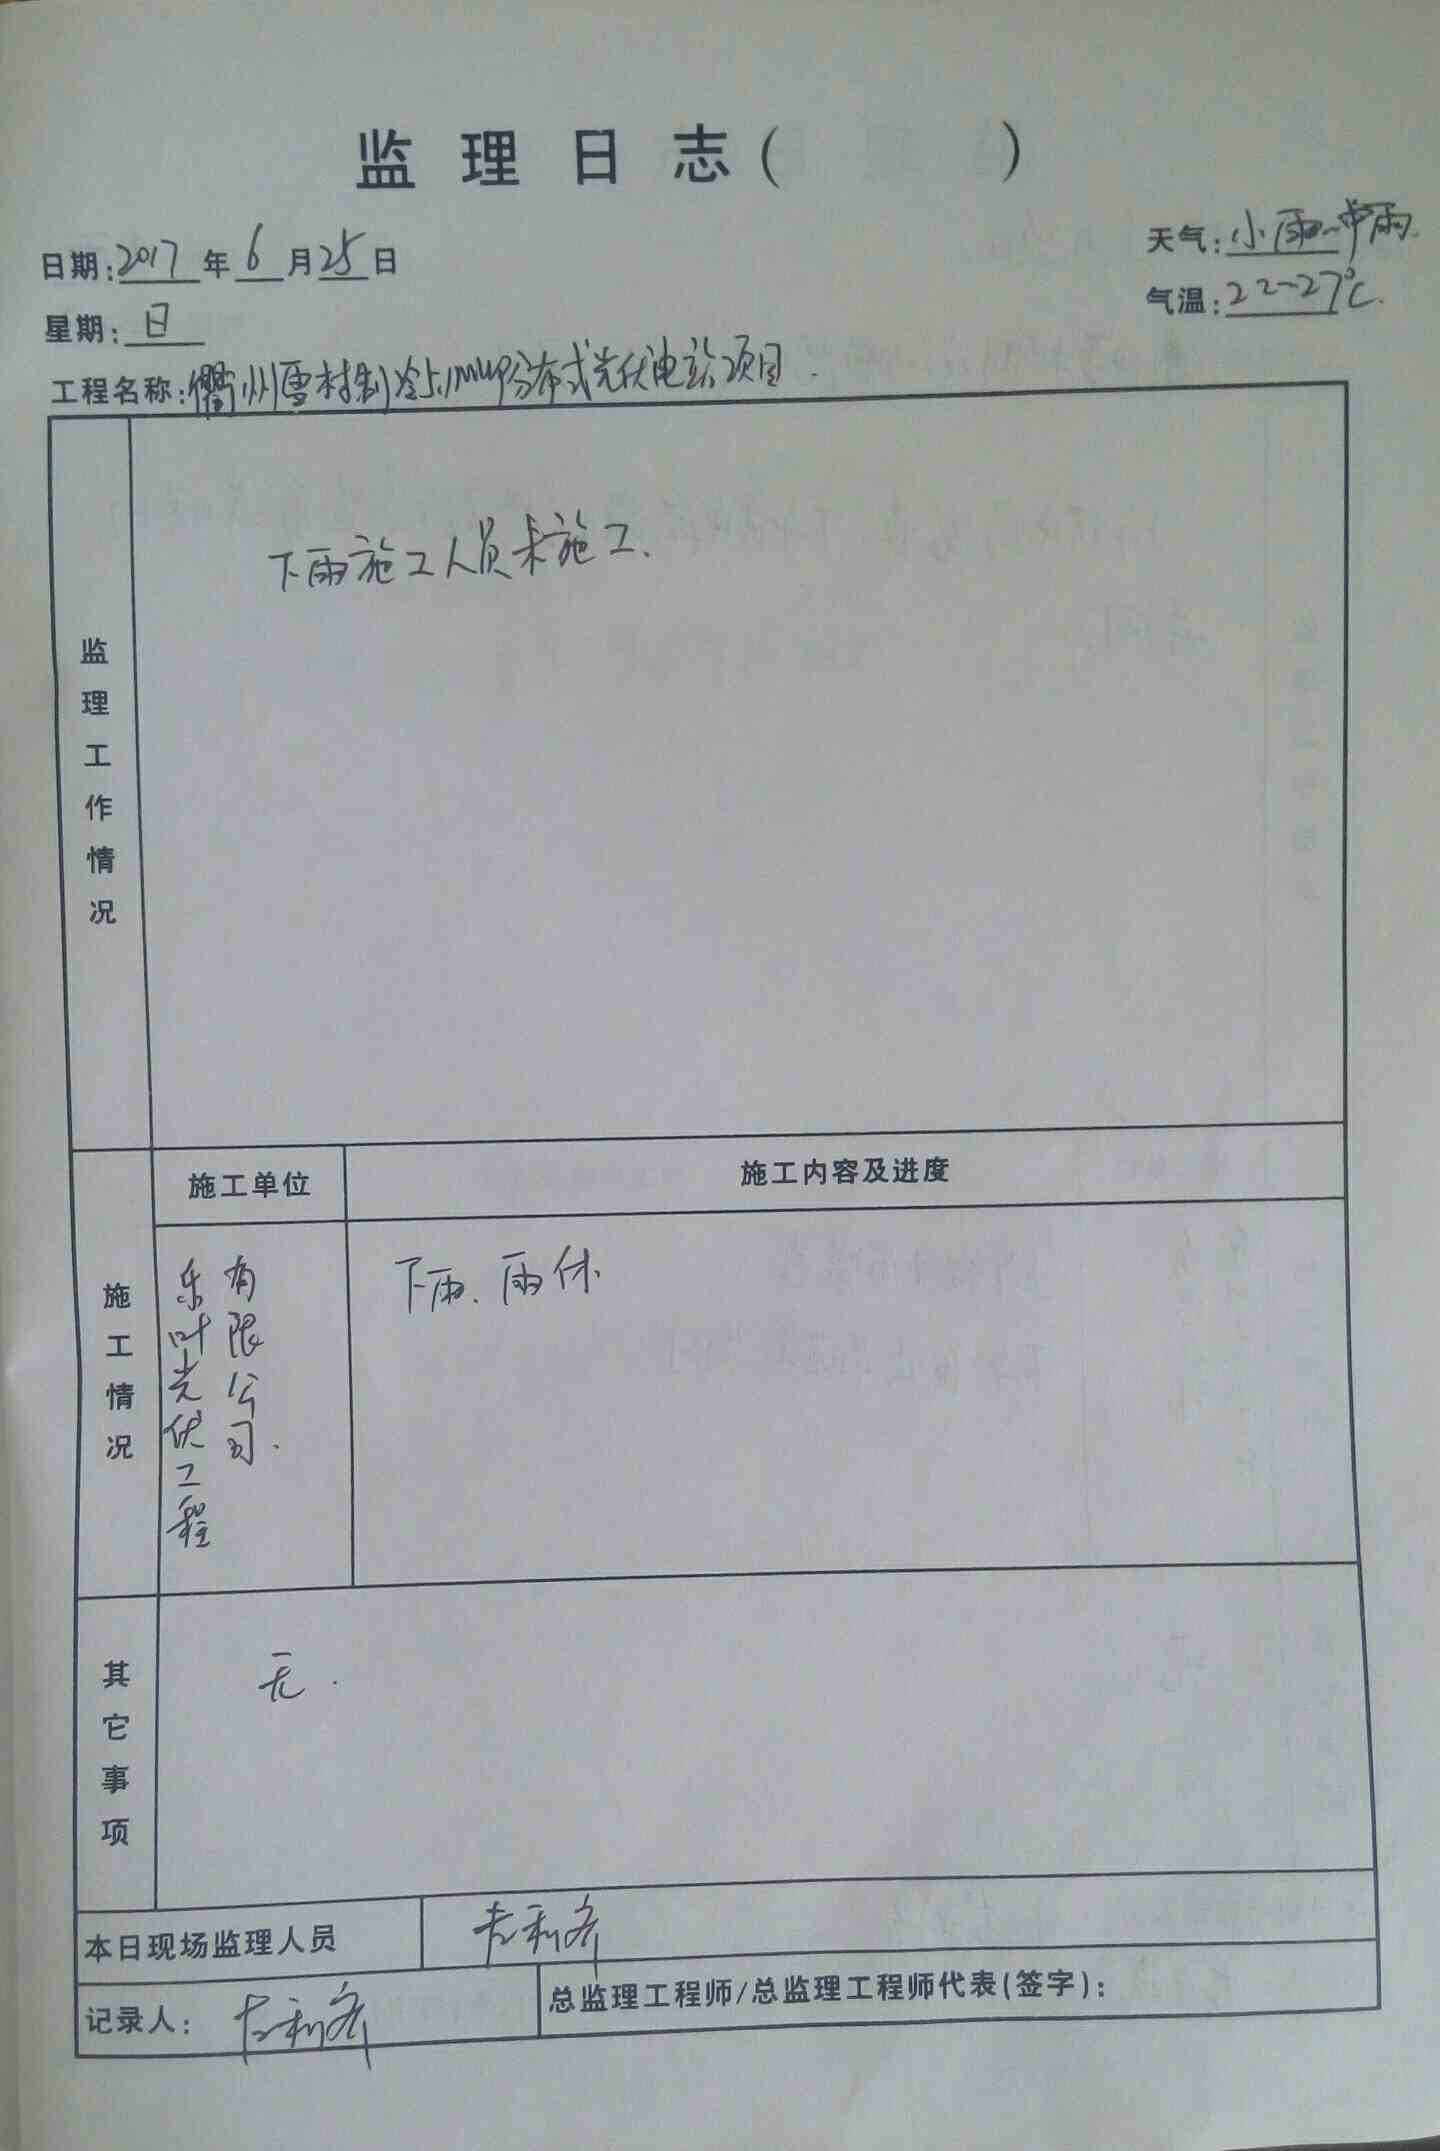 监理日志(          )
日期:2017年6月25日
天气:小雨~中雨.
星期:日
气温:22~27℃.
工程名称:衢州雪村制冷5.1MWP分布式光伏电站项目.
监理工作情况
下雨施工人员未施工.
施工情况
施工单位
施工内容及进度
乐叶光伏工程
有限公司.
下雨、雨休
其它事项
无.
本日现场监理人员
记录人:
总监理工程师/总监理工程师代表(签字):